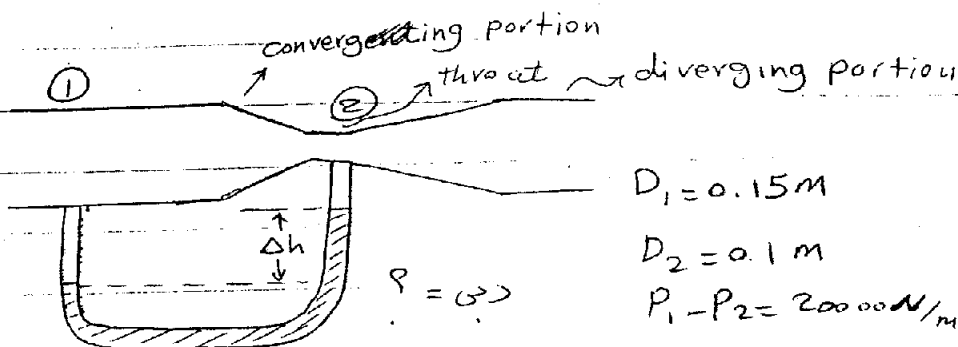 converging portion
① ② throat diverging portion
D₁ = 0.15 m
Δh
D₂ = 0.1 m
دبی = ؟
P₁ - P₂ = 20000 N/m